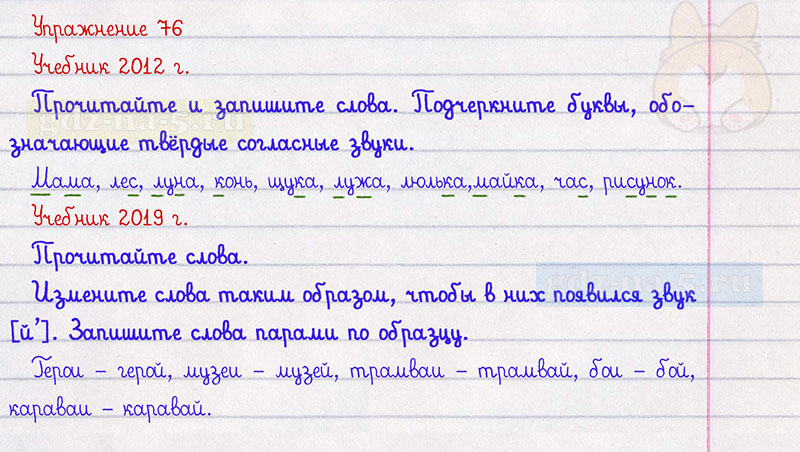 Упражнение 76
Учебник 2012 г.
Прочитайте и запишите слова. Подчеркните буквы, обо-
значающие твёрдые согласные звуки.
Мама, лес, луна, конь, щука, лужа, люлька,майка, час, рисунок.
Учебник 2019 г.
Прочитайте слова.
Измените слова таким образом, чтобы в них появился звук
[й’]. Запишите слова парами по образцу.
Герои – герой, музеи – музей, трамваи – трамвай, бои – бой,
караваи – каравай.
gdz-na-5.ru
gdz-na-5.ru